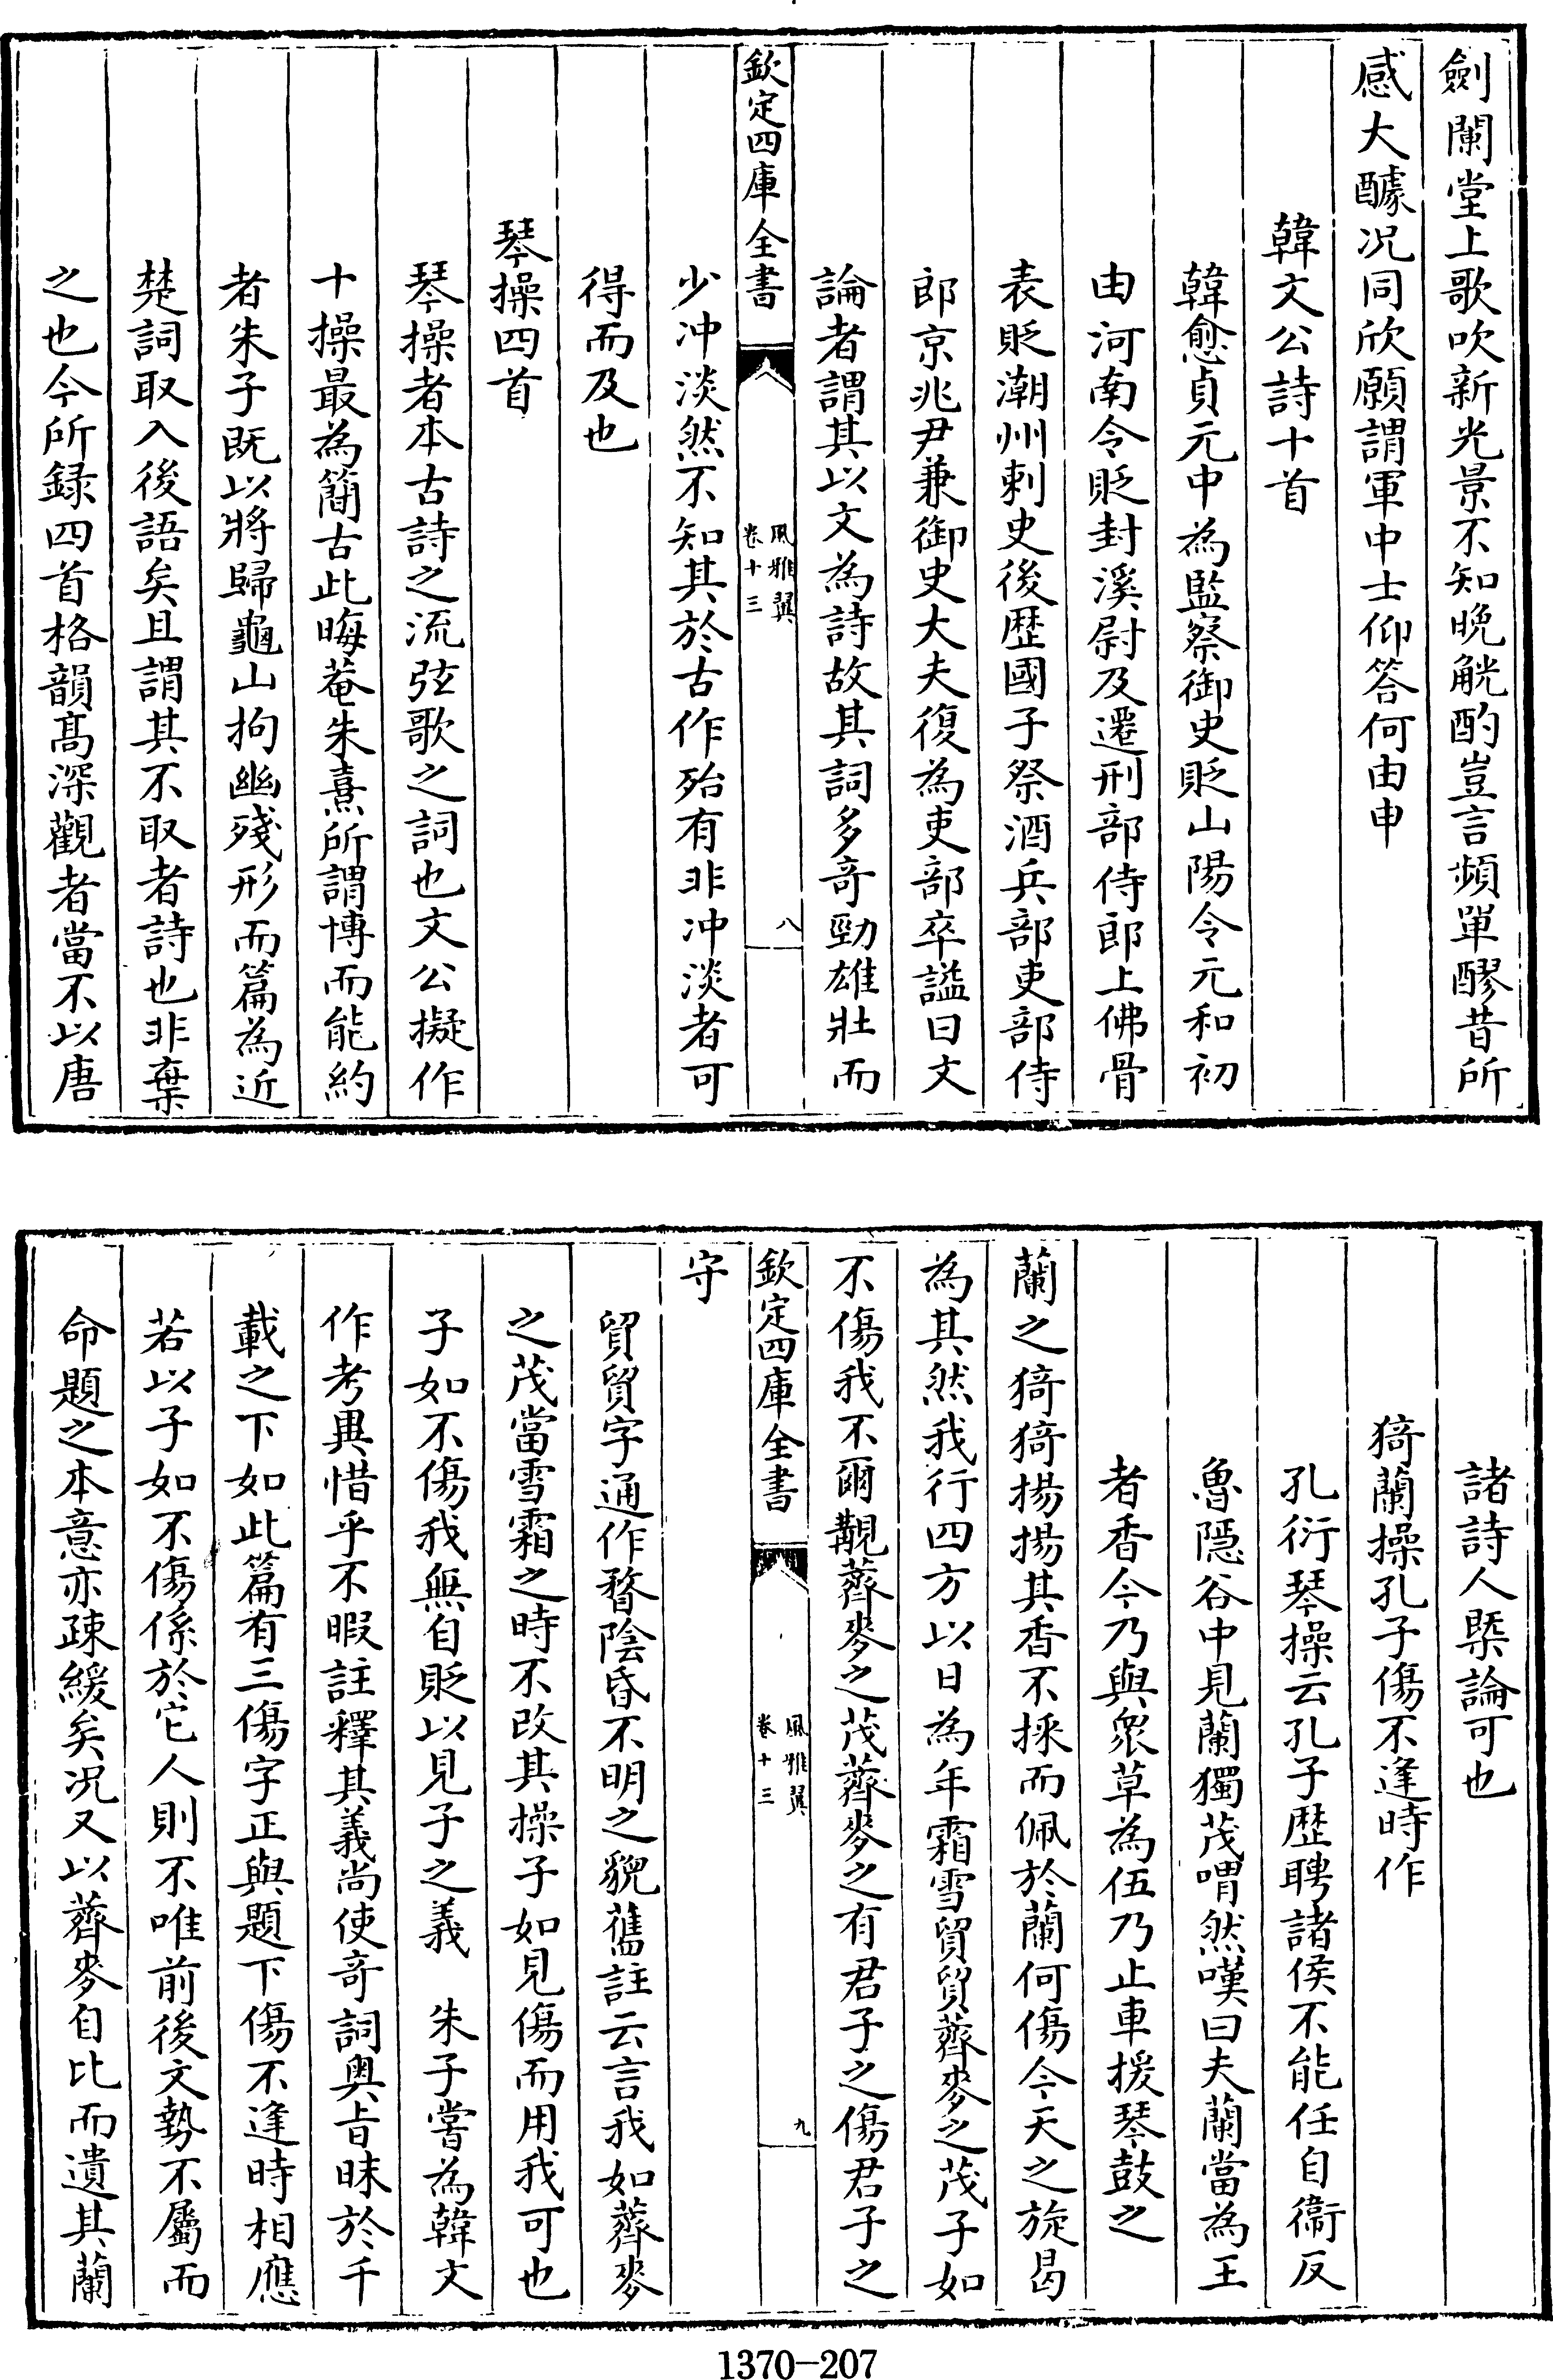 劍闌堂上歌吹新光景不知晚觥酌豈言頻單醪昔所
感大醵况同欣願謂軍中士仰答何由申
韓文公詩十首
韓愈貞元中為監察御史貶山陽令元和初
由河南令貶封溪尉及遷刑部侍郎上佛骨
表貶潮州刺史後歴國子祭酒兵部吏部侍
郎京兆尹兼御史大夫復為吏部卒謚曰文
論者謂其以文為詩故其詞多奇勁雄壯而
欽定四庫全書
風雅翼
卷十三
八
少冲淡然不知其於古作殆有非冲淡者可
得而及也
琴操四首
琴操者本古詩之流弦歌之詞也文公擬作
十操最為簡古此晦菴朱熹所謂博而能約
者朱子既以將歸龜山拘幽殘形而篇為近
楚詞取入後語矣且謂其不取者詩也非棄
之也今所録四首格韻髙深觀者當不以唐
諸詩人槩論可也
猗蘭操孔子傷不逢時作
孔衍琴操云孔子歴聘諸侯不能任自衞反
魯隠谷中見蘭獨茂喟然嘆曰夫蘭當為王
者香今乃與衆草為伍乃止車援琴鼓之
蘭之猗猗揚揚其香不採而佩於蘭何傷今天之旋曷
為其然我行四方以日為年霜雪貿貿薺麥之茂子如
不傷我不爾覯薺麥之茂薺麥之有君子之傷君子之
欽定四庫全書
風雅翼
卷十三
九
守
貿貿字通作瞀陰昏不明之貌舊註云言我如薺麥
之茂當雪霜之時不改其操子如見傷而用我可也
子如不傷我無自貶以見子之義　朱子嘗為韓文
作考異惜乎不暇註釋其義尚使奇詞奥旨昧於千
載之下如此篇有三傷字正與題下傷不逢時相應
若以子如不傷係於它人則不唯前後文勢不屬而
命題之本意亦疎緩矣况又以薺麥自比而遺其蘭
1370-207